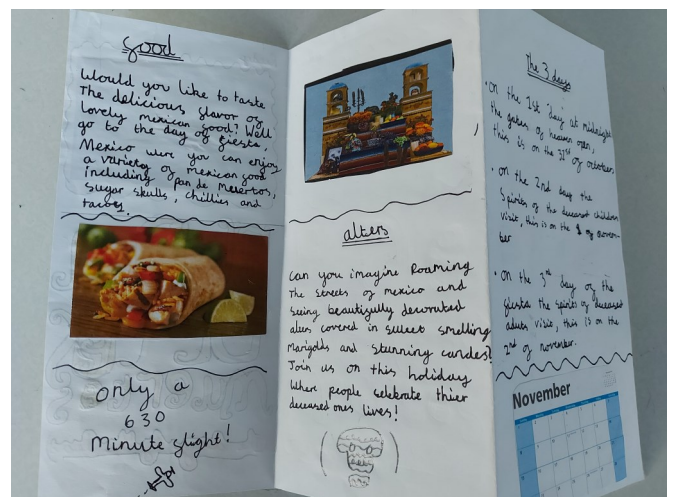 food
Would you like to taste
The delicious flavor of
lovely mexican food? Well
go to the day of fiesta,
Mexico were you can enjoy
a variety of mexican food
including pan de muertos,
sugar skulls, chillies and
tacos.
only a
630
Minute flight!
alters
Can you imagine Roaming
The streets of mexico and
seeing beautifully decorated
covered in sweet smelling
Marigolds and stunning candes!
Join us on this holiday
Where people celebrate thier
deceased ones lives!
The 3 days
• on the 1st day at midnight
the gates of heaven open,
this is on the 31st of october.
• on the 2nd day the
Spirits of the deceast children
visit, this is on the 1 of novem-
ber
• on the 3rd day of the
fiesta the spirits of deceased
adults visit, this is on the
2nd of november.
November